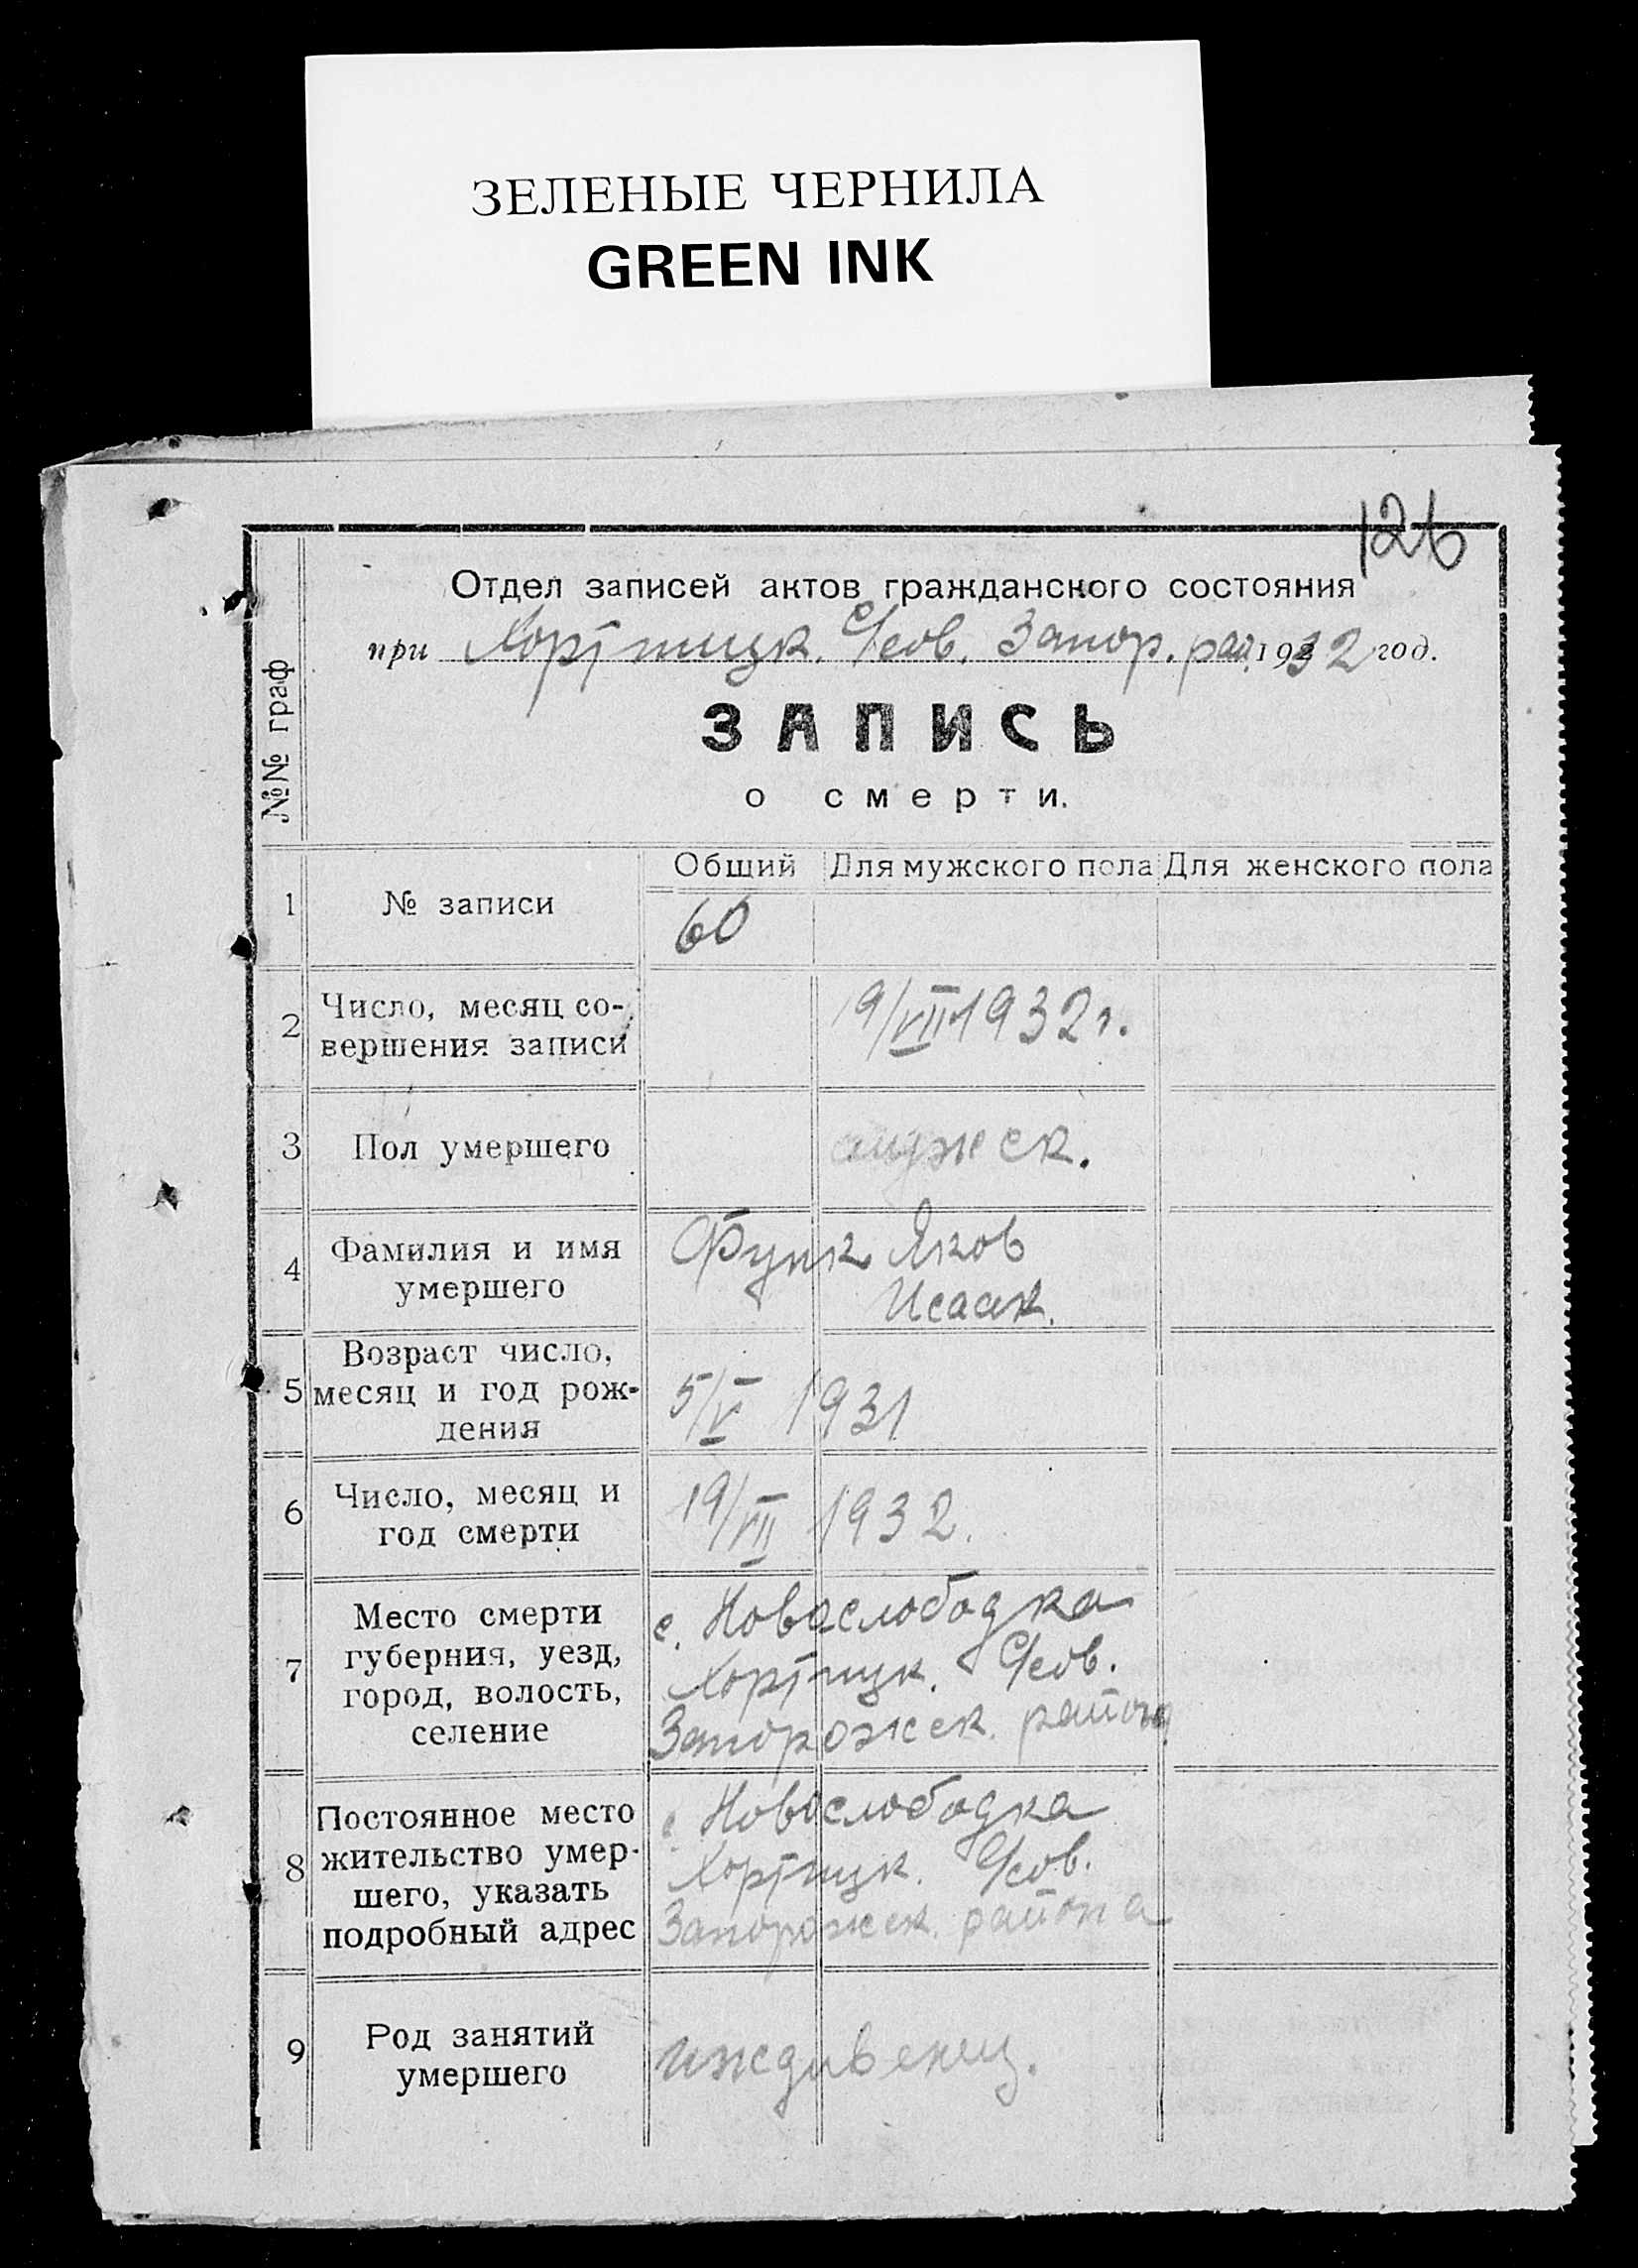 ЗЕЛЕНЫЕ ЧЕРНИЛА
GREEN INK
126
Отдел записей актов гражданского состояния
при Хортицк. С/сов. Запор. рай. 1932 год.
№№ граф
ЗАПИСЬ
о смерти.
Общий Для мужского пола Для женского пола
1 № записи 60
2 Число, месяц со-
вершения записи 19/VII 1932 г.
3 Пол умершего мужск.
4 Фамилия и имя
умершего Функ Яков
Исаак.
5 Возраст число,
месяц и год рож-
дения 5/V 1931
6 Число, месяц и
год смерти 19/VII 1932.
7 Место смерти
губерния, уезд,
город, волость,
селение с. Новослободка
Хортицк. С/сов.
Запорожск. района
8 Постоянное место
жительство умер-
шего, указать
подробный адрес с. Новослободка
Хортицк. С/сов.
Запорожск. района
9 Род занятий
умершего иждивенец.